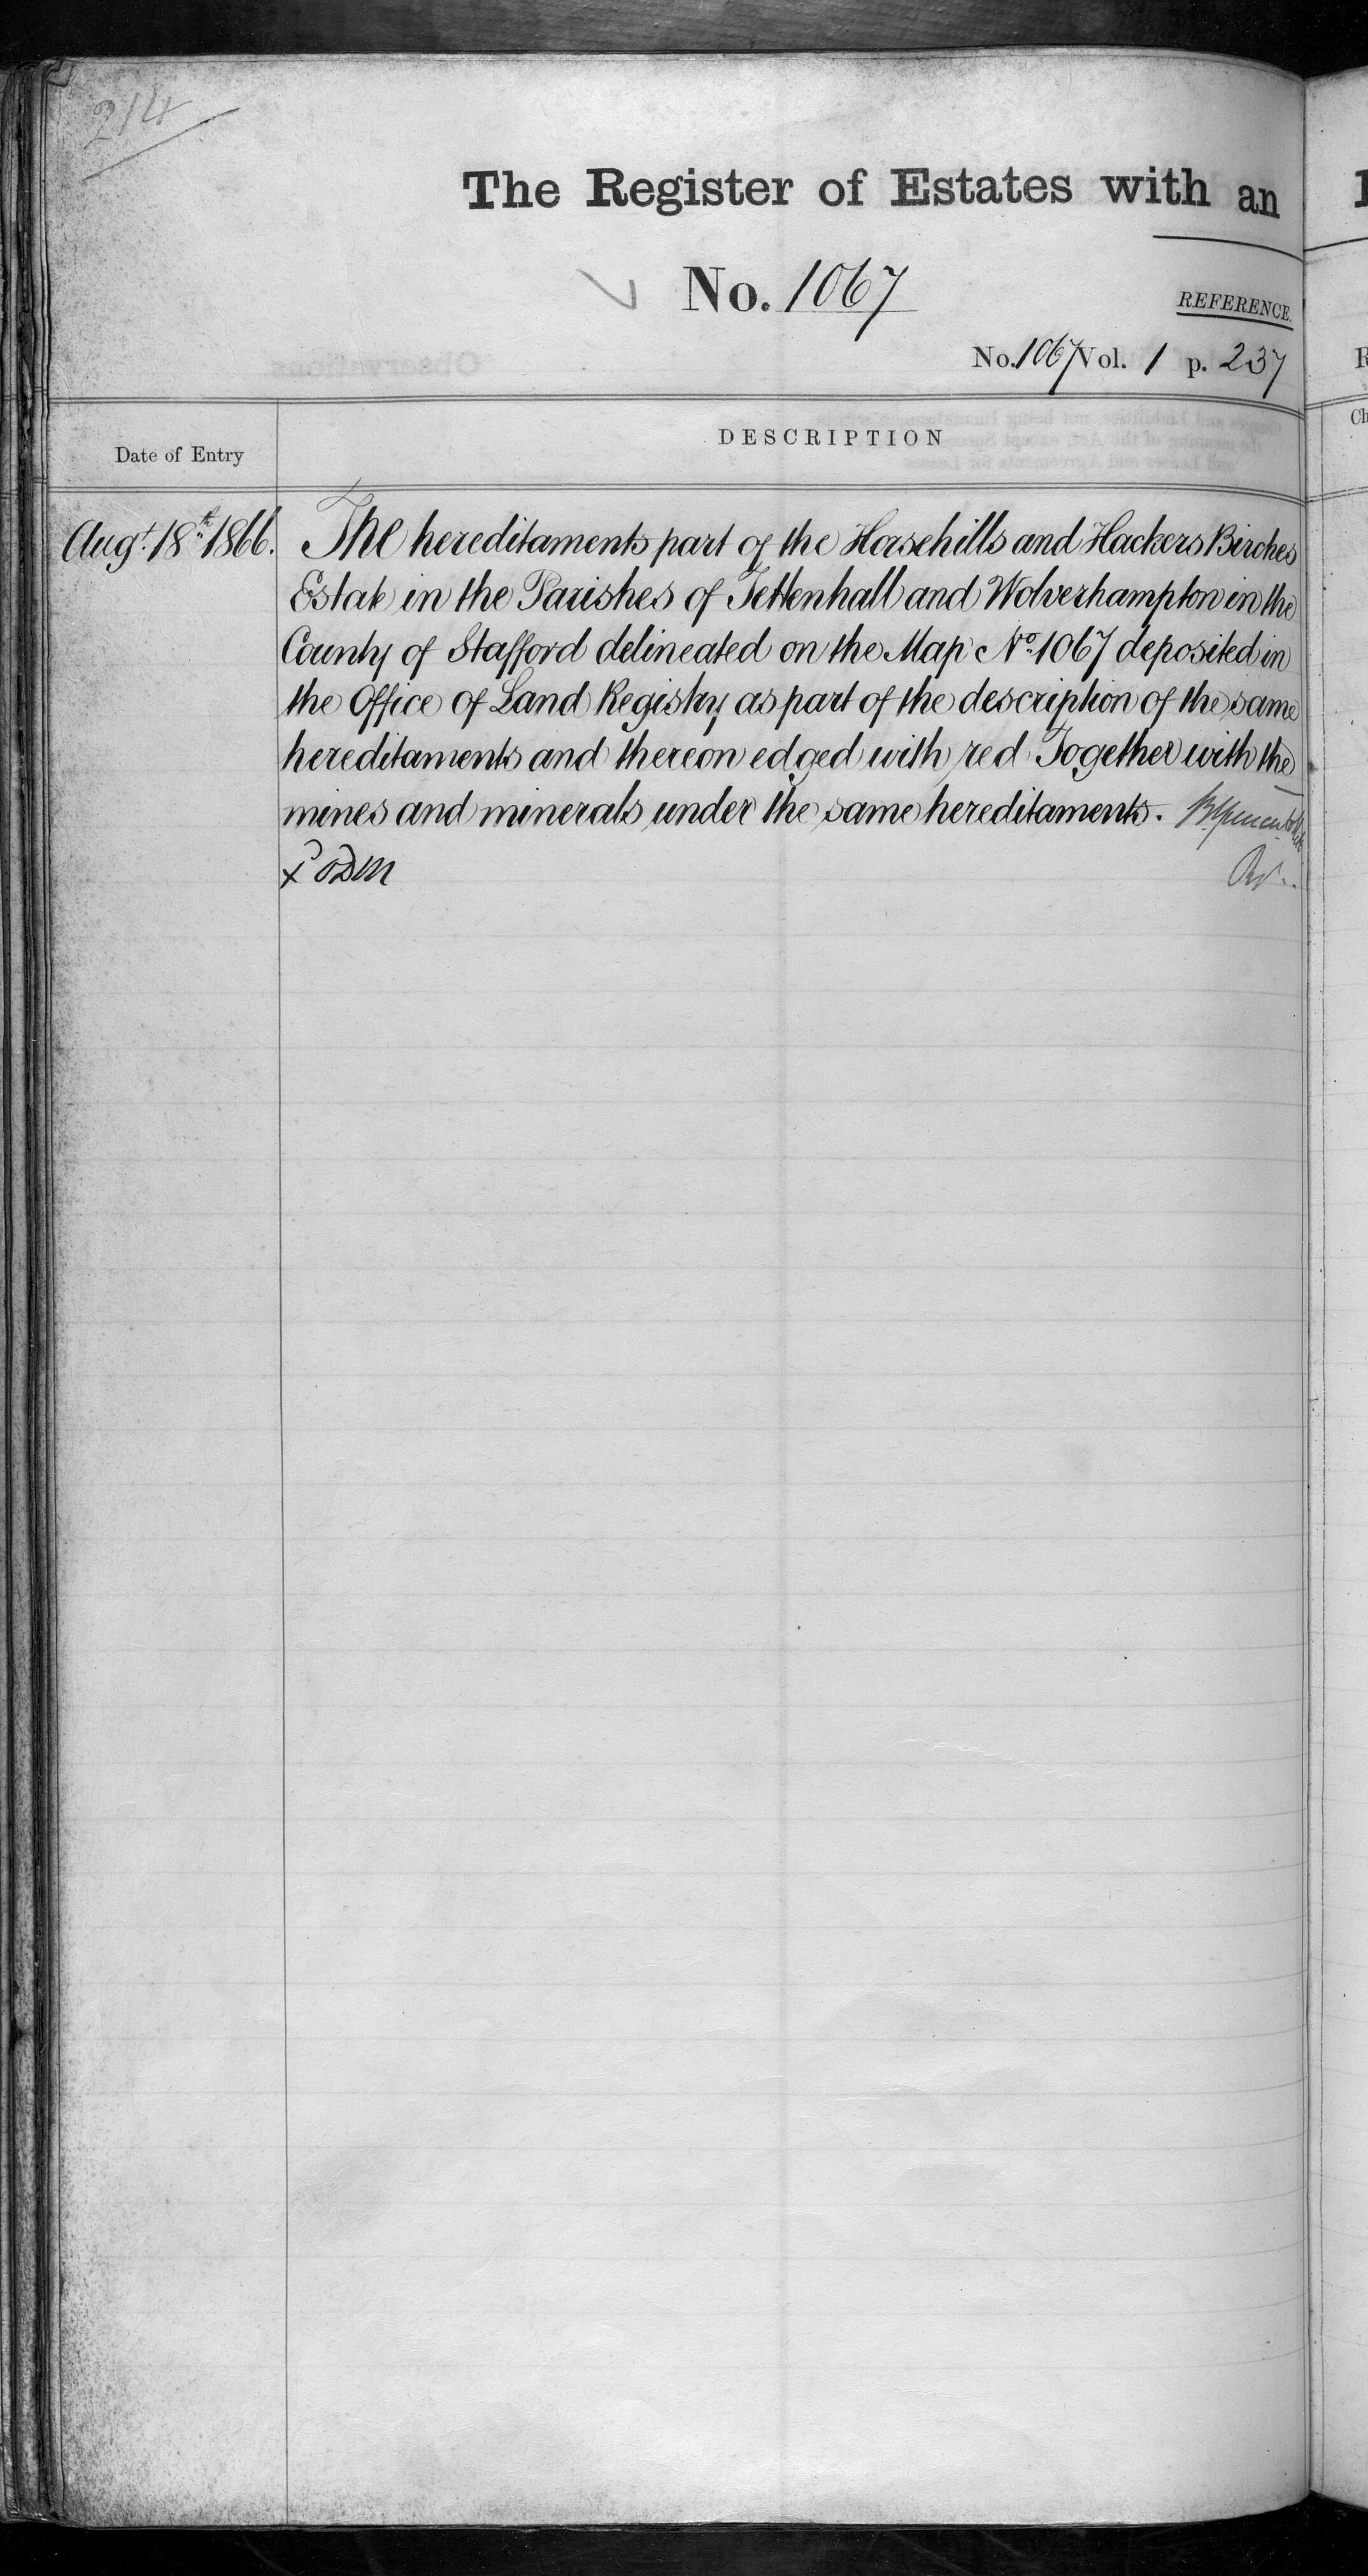 214
The Register of Estates with an
No. 1067
REFERENCE.
No. 1067 Vol. 1 p. 237
Date of Entry
DESCRIPTION
Augt. 18th 1866.
The hereditaments part of the Horsehills and Hackers Birches
Estate in the Parishes of Tettenhall and Wolverhampton in the
County of Stafford delineated on the Map No. 1067 deposited in
the Office of Land Registry as part of the description of the same
hereditaments and thereon edged with red Together with the
mines and minerals under the same hereditaments.